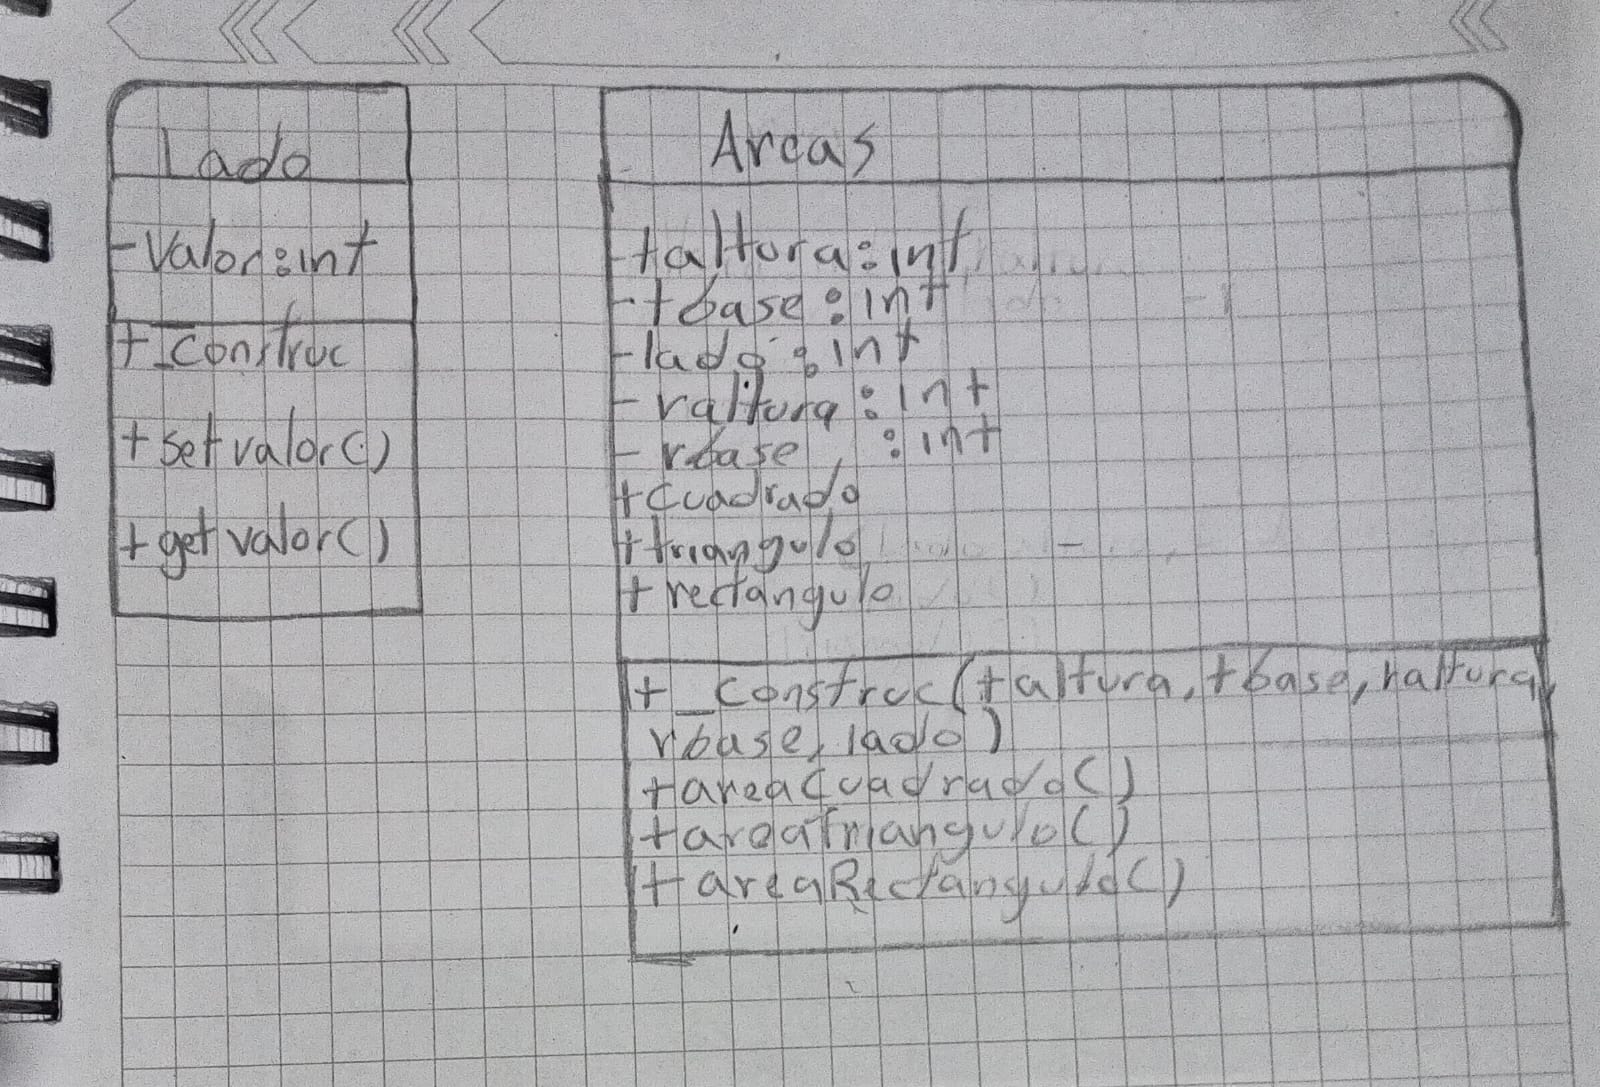 Lado
- valor: int
+ _construc
+ set valor()
+ get valor()
Areas
- taltura: int
- tbase: int
- lado: int
- raltura: int
- rbase : int
+ cuadrado
+ triangulo
+ rectangulo
+ _construc(taltura, tbase, raltura,
rbase, lado)
+ areaCuadrado()
+ areaTriangulo()
+ areaRectangulo()